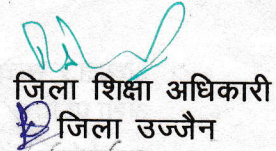 जिला शिक्षा अधिकारी
जिला उज्जैन